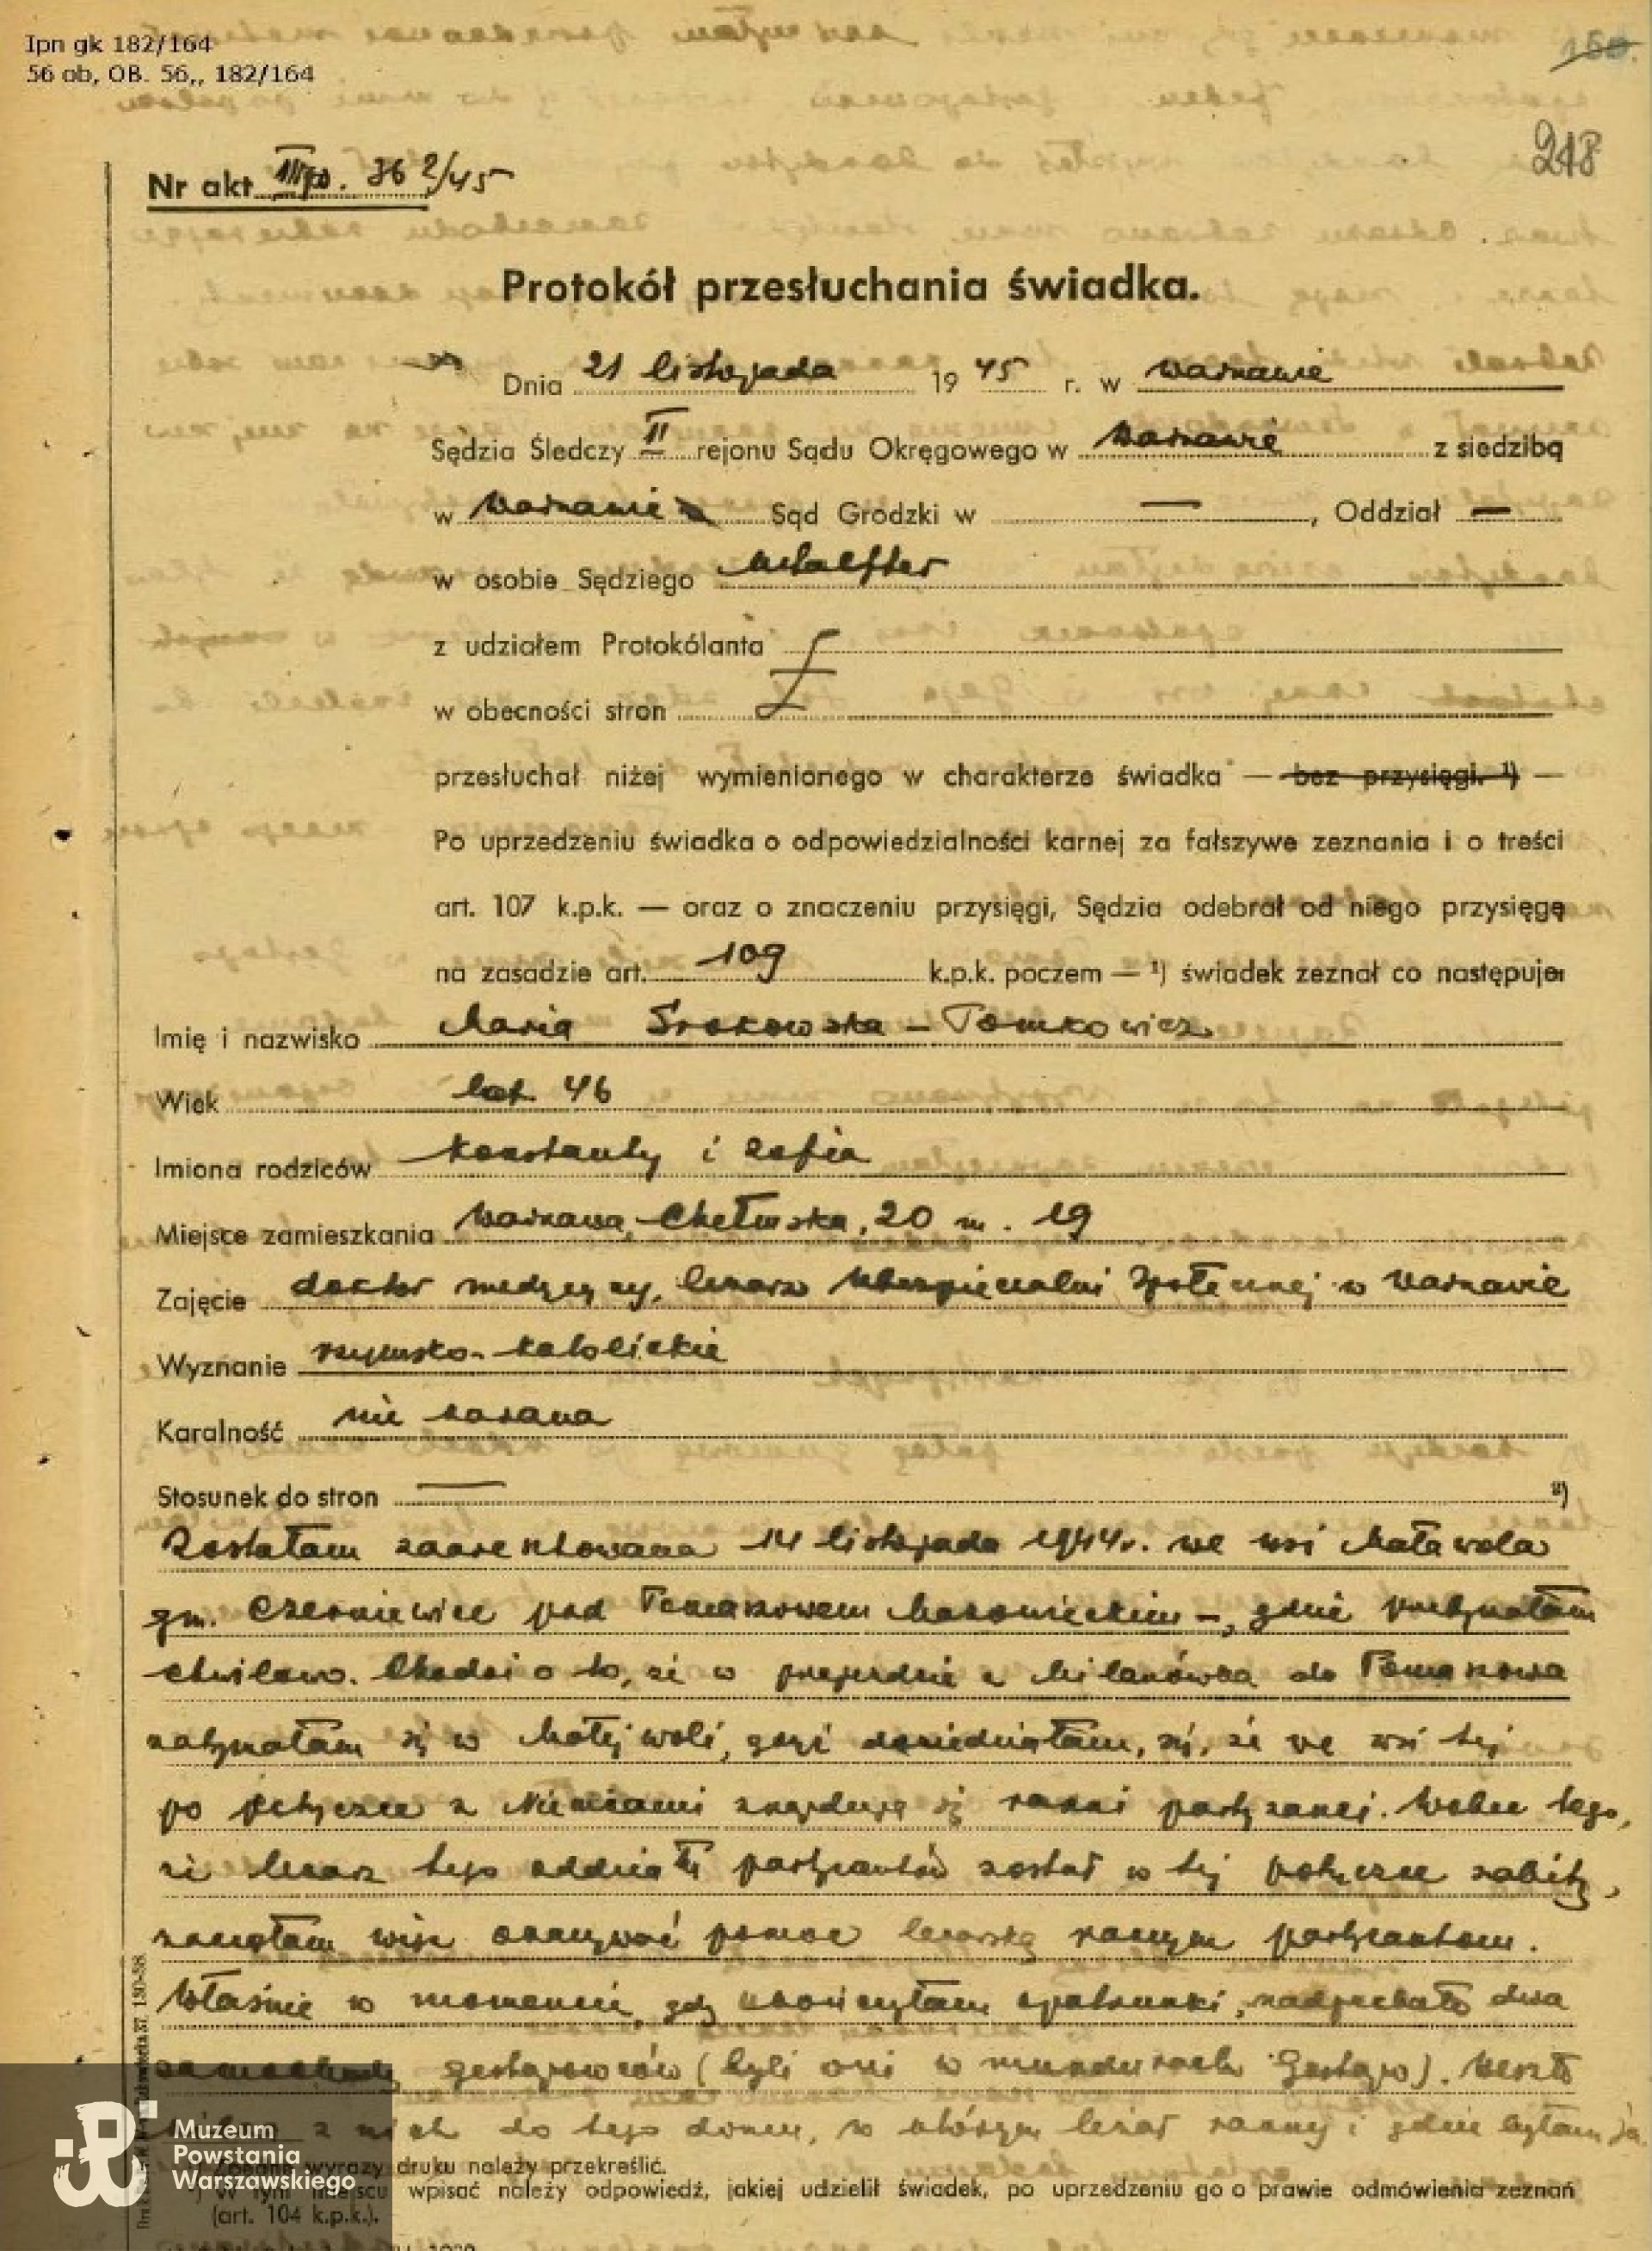 Ipn gk 182/164
56 ob, OB. 56,, 182/164
150.
218
Nr akt 362/45
Protokół przesłuchania świadka.
Dnia 21 listopada 1945 r. w Warszawie
Sędzia Śledczy II rejonu Sądu Okręgowego w Warszawie z siedzibą
w Warszawie Sąd Grodzki w —, Oddział —
w osobie Sędziego Halfter
z udziałem Protokólanta
w obecności stron
przesłuchał niżej wymienionego w charakterze świadka — bez przysięgi. ¹) —
Po uprzedzeniu świadka o odpowiedzialności karnej za fałszywe zeznania i o treści
art. 107 k.p.k. — oraz o znaczeniu przysięgi, Sędzia odebrał od niego przysięgę
na zasadzie art. 109 k.p.k. poczem — ¹) świadek zeznał co następuje:
Imię i nazwisko Maria Srokowska – Tomkowicz
Wiek lat 46
Imiona rodziców Konstanty i Zofia
Miejsce zamieszkania Warszawa, Chełmska, 20 m. 19
Zajęcie doktor medycyny, lekarz Ubezpieczalni Społecznej w Warszawie
Wyznanie rzymsko-katolickie
Karalność nie karana
Stosunek do stron — ²)
Zostałam zaaresztowana 14 listopada 1944 r. we wsi Mała Wola
gm. Czerniewice pod Tomaszowem Mazowieckim –, gdzie przebywałam
chwilowo. Chodzi o to, że w przejeździe z Milanówka do Tomaszowa
zatrzymałam się w Małej Woli, gdyż dowiedziałam, się, że we wsi tej
po potyczce z Niemcami znajdują się ranni partyzanci. Wobec tego,
że lekarz tego oddziału partyzantów został w tej potyczce zabity,
zaczęłam więc okazywać pomoc lekarską rannym partyzantom.
Właśnie w momencie, gdy ukończyłam opatrunki, nadjechały dwa
samochody gestapowców (byli oni w mundurach Gestapo). Weszło
z nich do tego domu, w którym leżał ranny i gdzie byłam ja.
¹) Zbędne wyrazy druku należy przekreślić.
²) W tym miejscu wpisać należy odpowiedź, jakiej udzielił świadek, po uprzedzeniu go o prawie odmówienia zeznań
(art. 104 k.p.k.).
Muzeum
Powstania
Warszawskiego